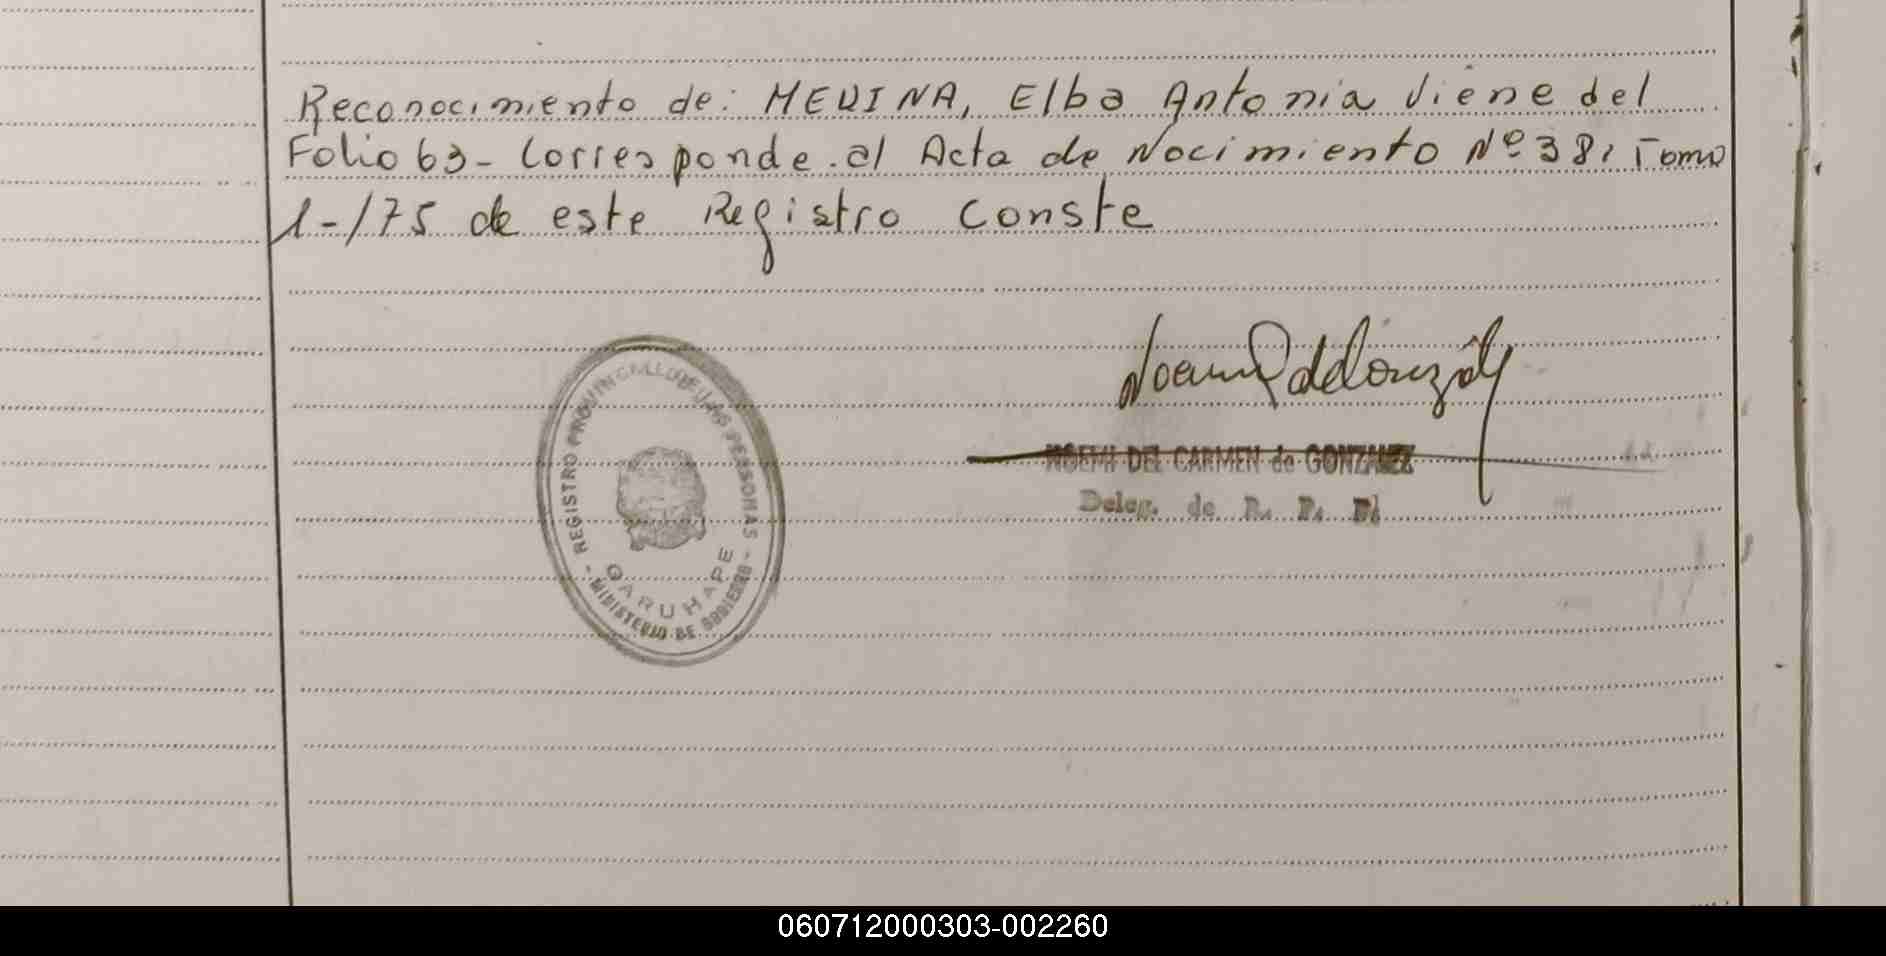 Reconocimiento de: MEDINA, Elba Antonia Viene del
Folio 63- Corresponde al Acta de Nacimiento Nº 381 Tomo
1-/75 de este Registro Conste
REGISTRO PROVINCIAL DE LAS PERSONAS
GARUHAPE
- MINISTERIO DE GOBIERNO -
NOEMI DEL CARMEN de GONZALEZ
Deleg. de R. P. P.
060712000303-002260